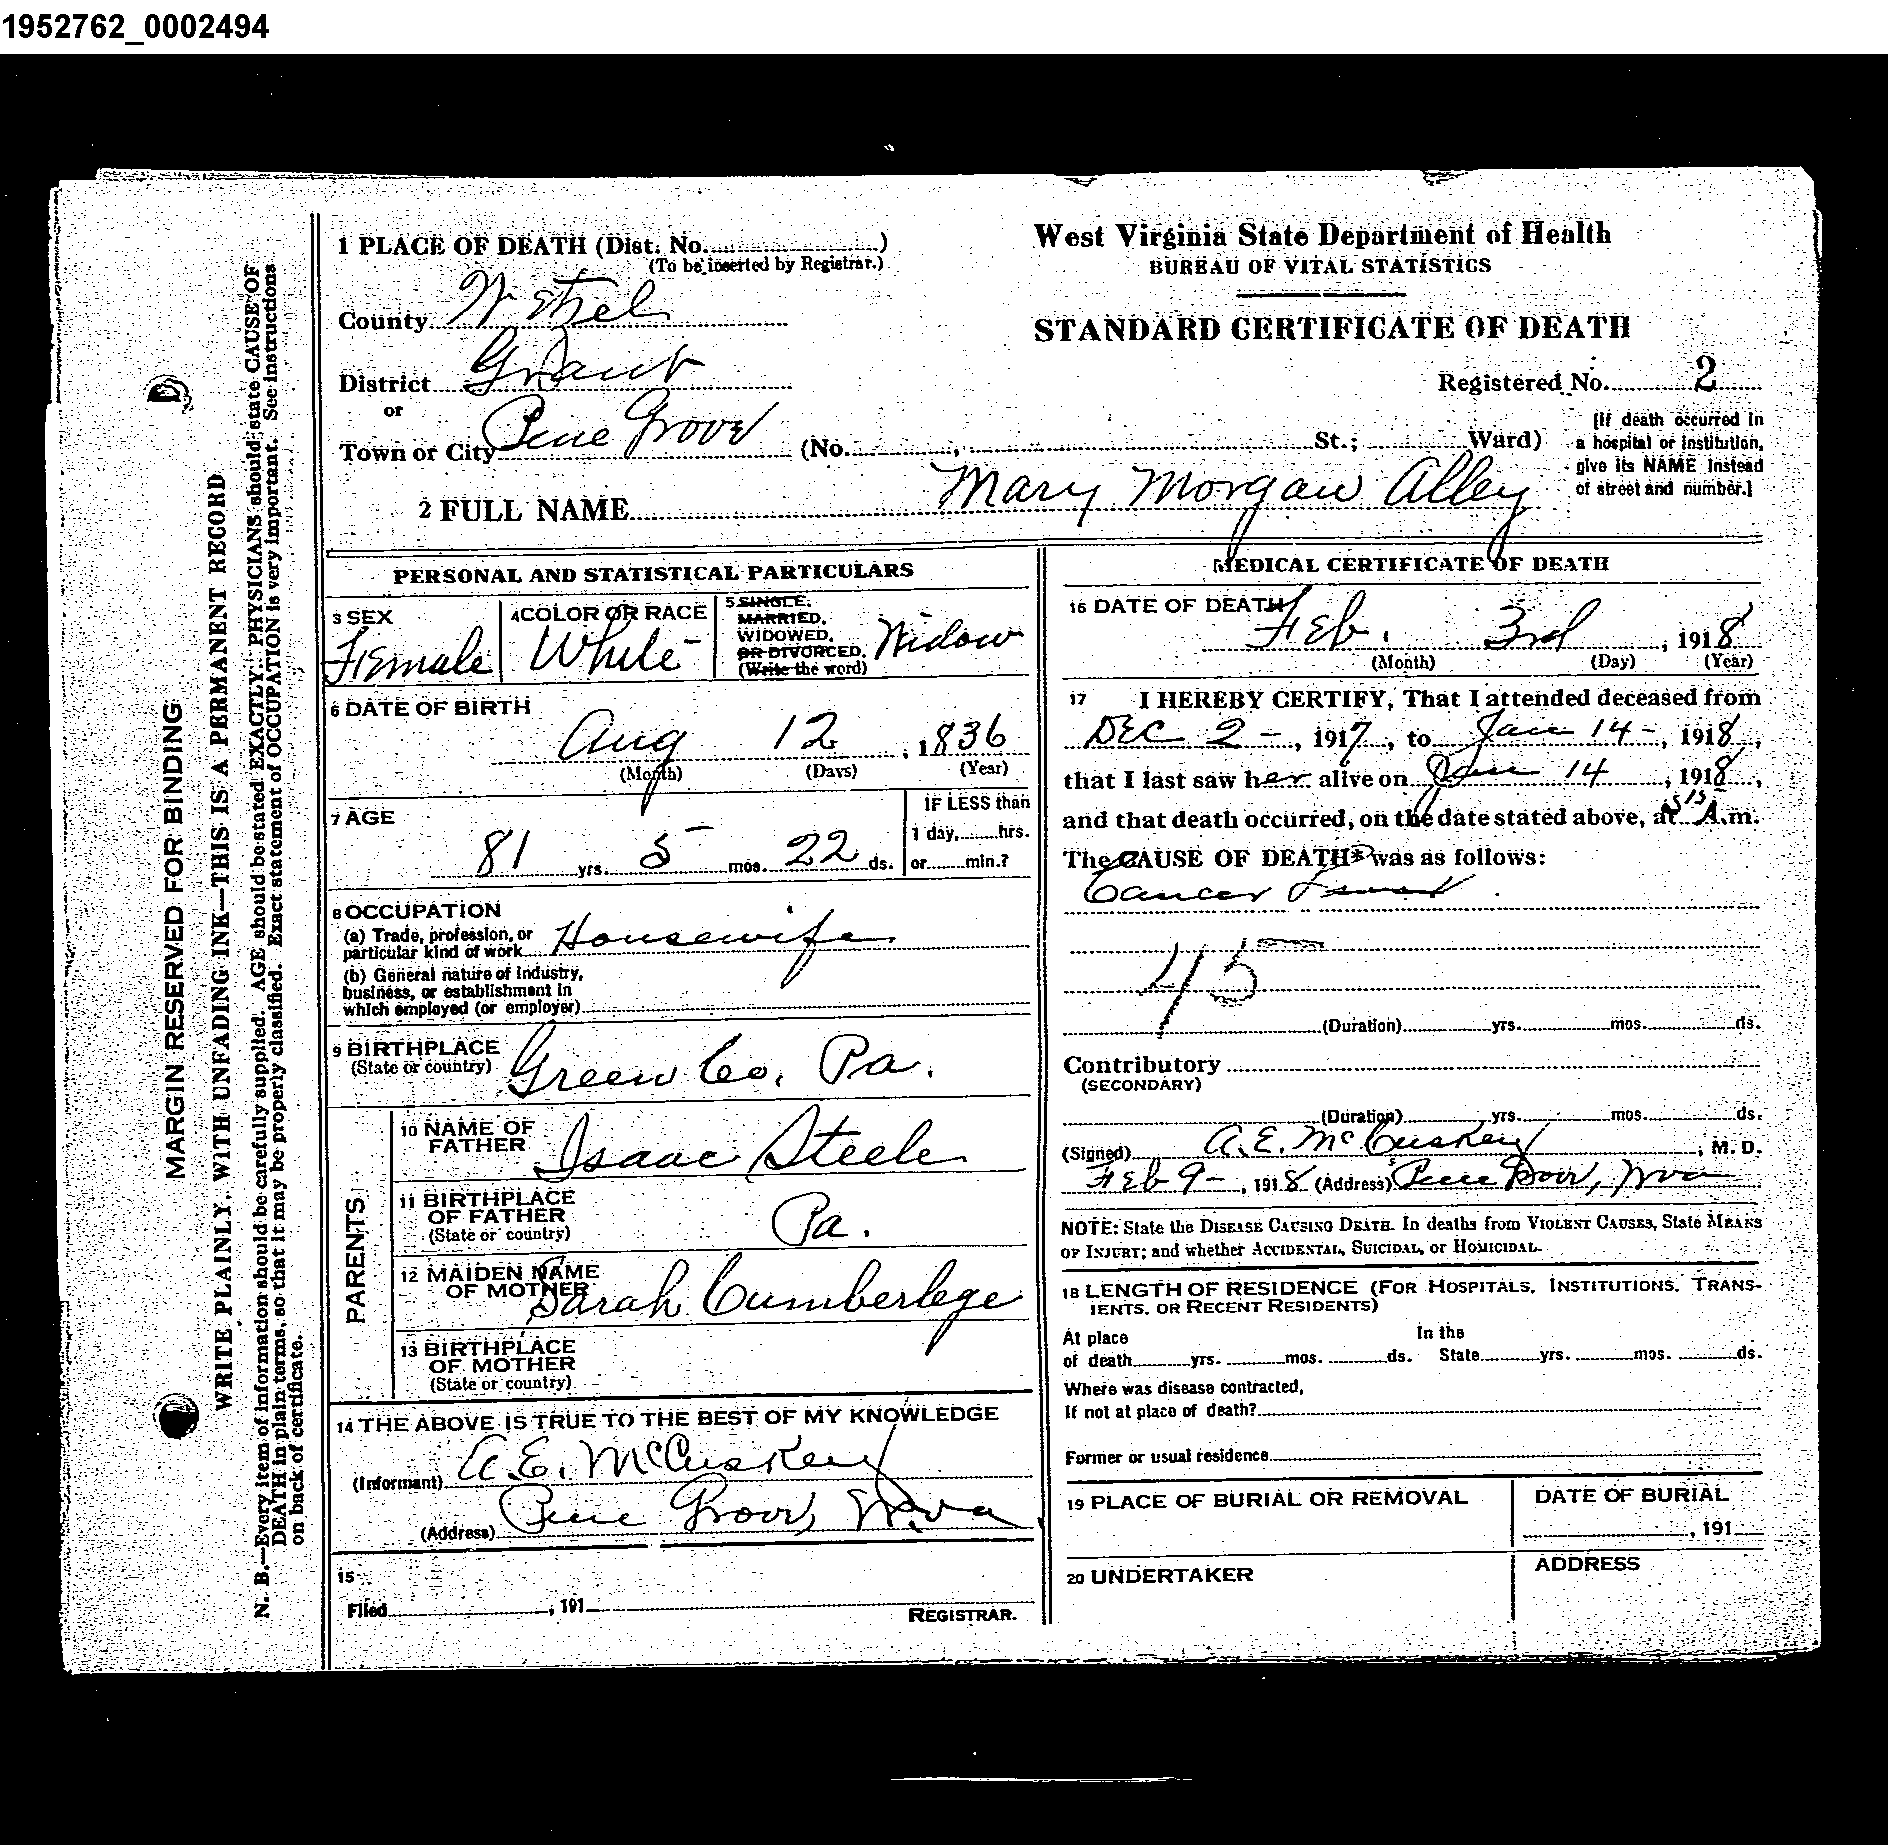 1952762_0002494
1 PLACE OF DEATH (Dist. No.)
(To be inserted by Registrar.)
County Wetzel
District Grant
or
Town or City Pine Grove (No. , St.; Ward)
[If death occurred in
a hospital or institution,
give its NAME instead
of street and number.]
2 FULL NAME Mary Morgan Alley
West Virginia State Department of Health
BUREAU OF VITAL STATISTICS
STANDARD CERTIFICATE OF DEATH
Registered No. 2
PERSONAL AND STATISTICAL PARTICULARS
3 SEX
Female
4 COLOR OR RACE
White
5 SINGLE,
MARRIED,
WIDOWED,
OR DIVORCED.
(Write the word)
Widow
6 DATE OF BIRTH
Aug 12, 1836
(Month) (Days) (Year)
7 AGE
81 yrs. 5 mos. 22 ds.
IF LESS than
1 day, hrs.
or min.?
8 OCCUPATION
(a) Trade, profession, or
particular kind of work Housewife
(b) General nature of Industry,
business, or establishment in
which employed (or employer)
9 BIRTHPLACE
(State or country) Green Co, Pa.
PARENTS
10 NAME OF
FATHER Isaac Steele
11 BIRTHPLACE
OF FATHER
(State or country) Pa.
12 MAIDEN NAME
OF MOTHER Sarah Cumberlege
13 BIRTHPLACE
OF MOTHER
(State or country)
14 THE ABOVE IS TRUE TO THE BEST OF MY KNOWLEDGE
(Informant) A.E. McCuskey
(Address) Pine Grove, W.va
15
Filed , 191
REGISTRAR.
MEDICAL CERTIFICATE OF DEATH
16 DATE OF DEATH
Feb. 3rd, 1918
(Month) (Day) (Year)
17 I HEREBY CERTIFY, That I attended deceased from
Dec 2-, 1917, to Jan 14-, 1918,
that I last saw her alive on Jan 14, 1918,
and that death occurred, on the date stated above, at 515 A.m.
The CAUSE OF DEATH* was as follows:
Cancer
45
(Duration) yrs. mos. ds.
Contributory
(SECONDARY)
(Duration) yrs. mos. ds.
(Signed) A.E. McCuskey, M. D.
Feb 9-, 1918 (Address) Pine Grove, Wva
NOTE: State the DISEASE CAUSING DEATH. In deaths from VIOLENT CAUSES, State MEANS
OF INJURY; and whether ACCIDENTAL, SUICIDAL, or HOMICIDAL.
18 LENGTH OF RESIDENCE (FOR HOSPITALS, INSTITUTIONS, TRANS-
IENTS, OR RECENT RESIDENTS)
At place In the
of death yrs. mos. ds. State yrs. mos. ds.
Where was disease contracted,
If not at place of death?
Former or usual residence
19 PLACE OF BURIAL OR REMOVAL
DATE OF BURIAL
, 191
20 UNDERTAKER
ADDRESS
MARGIN RESERVED FOR BINDING
WRITE PLAINLY, WITH UNFADING INK—THIS IS A PERMANENT RECORD
N. B.—Every item of information should be carefully supplied. AGE should be stated EXACTLY. PHYSICIANS should state CAUSE OF
DEATH in plain terms, so that it may be properly classified. Exact statement of OCCUPATION is very important. See instructions
on back of certificate.